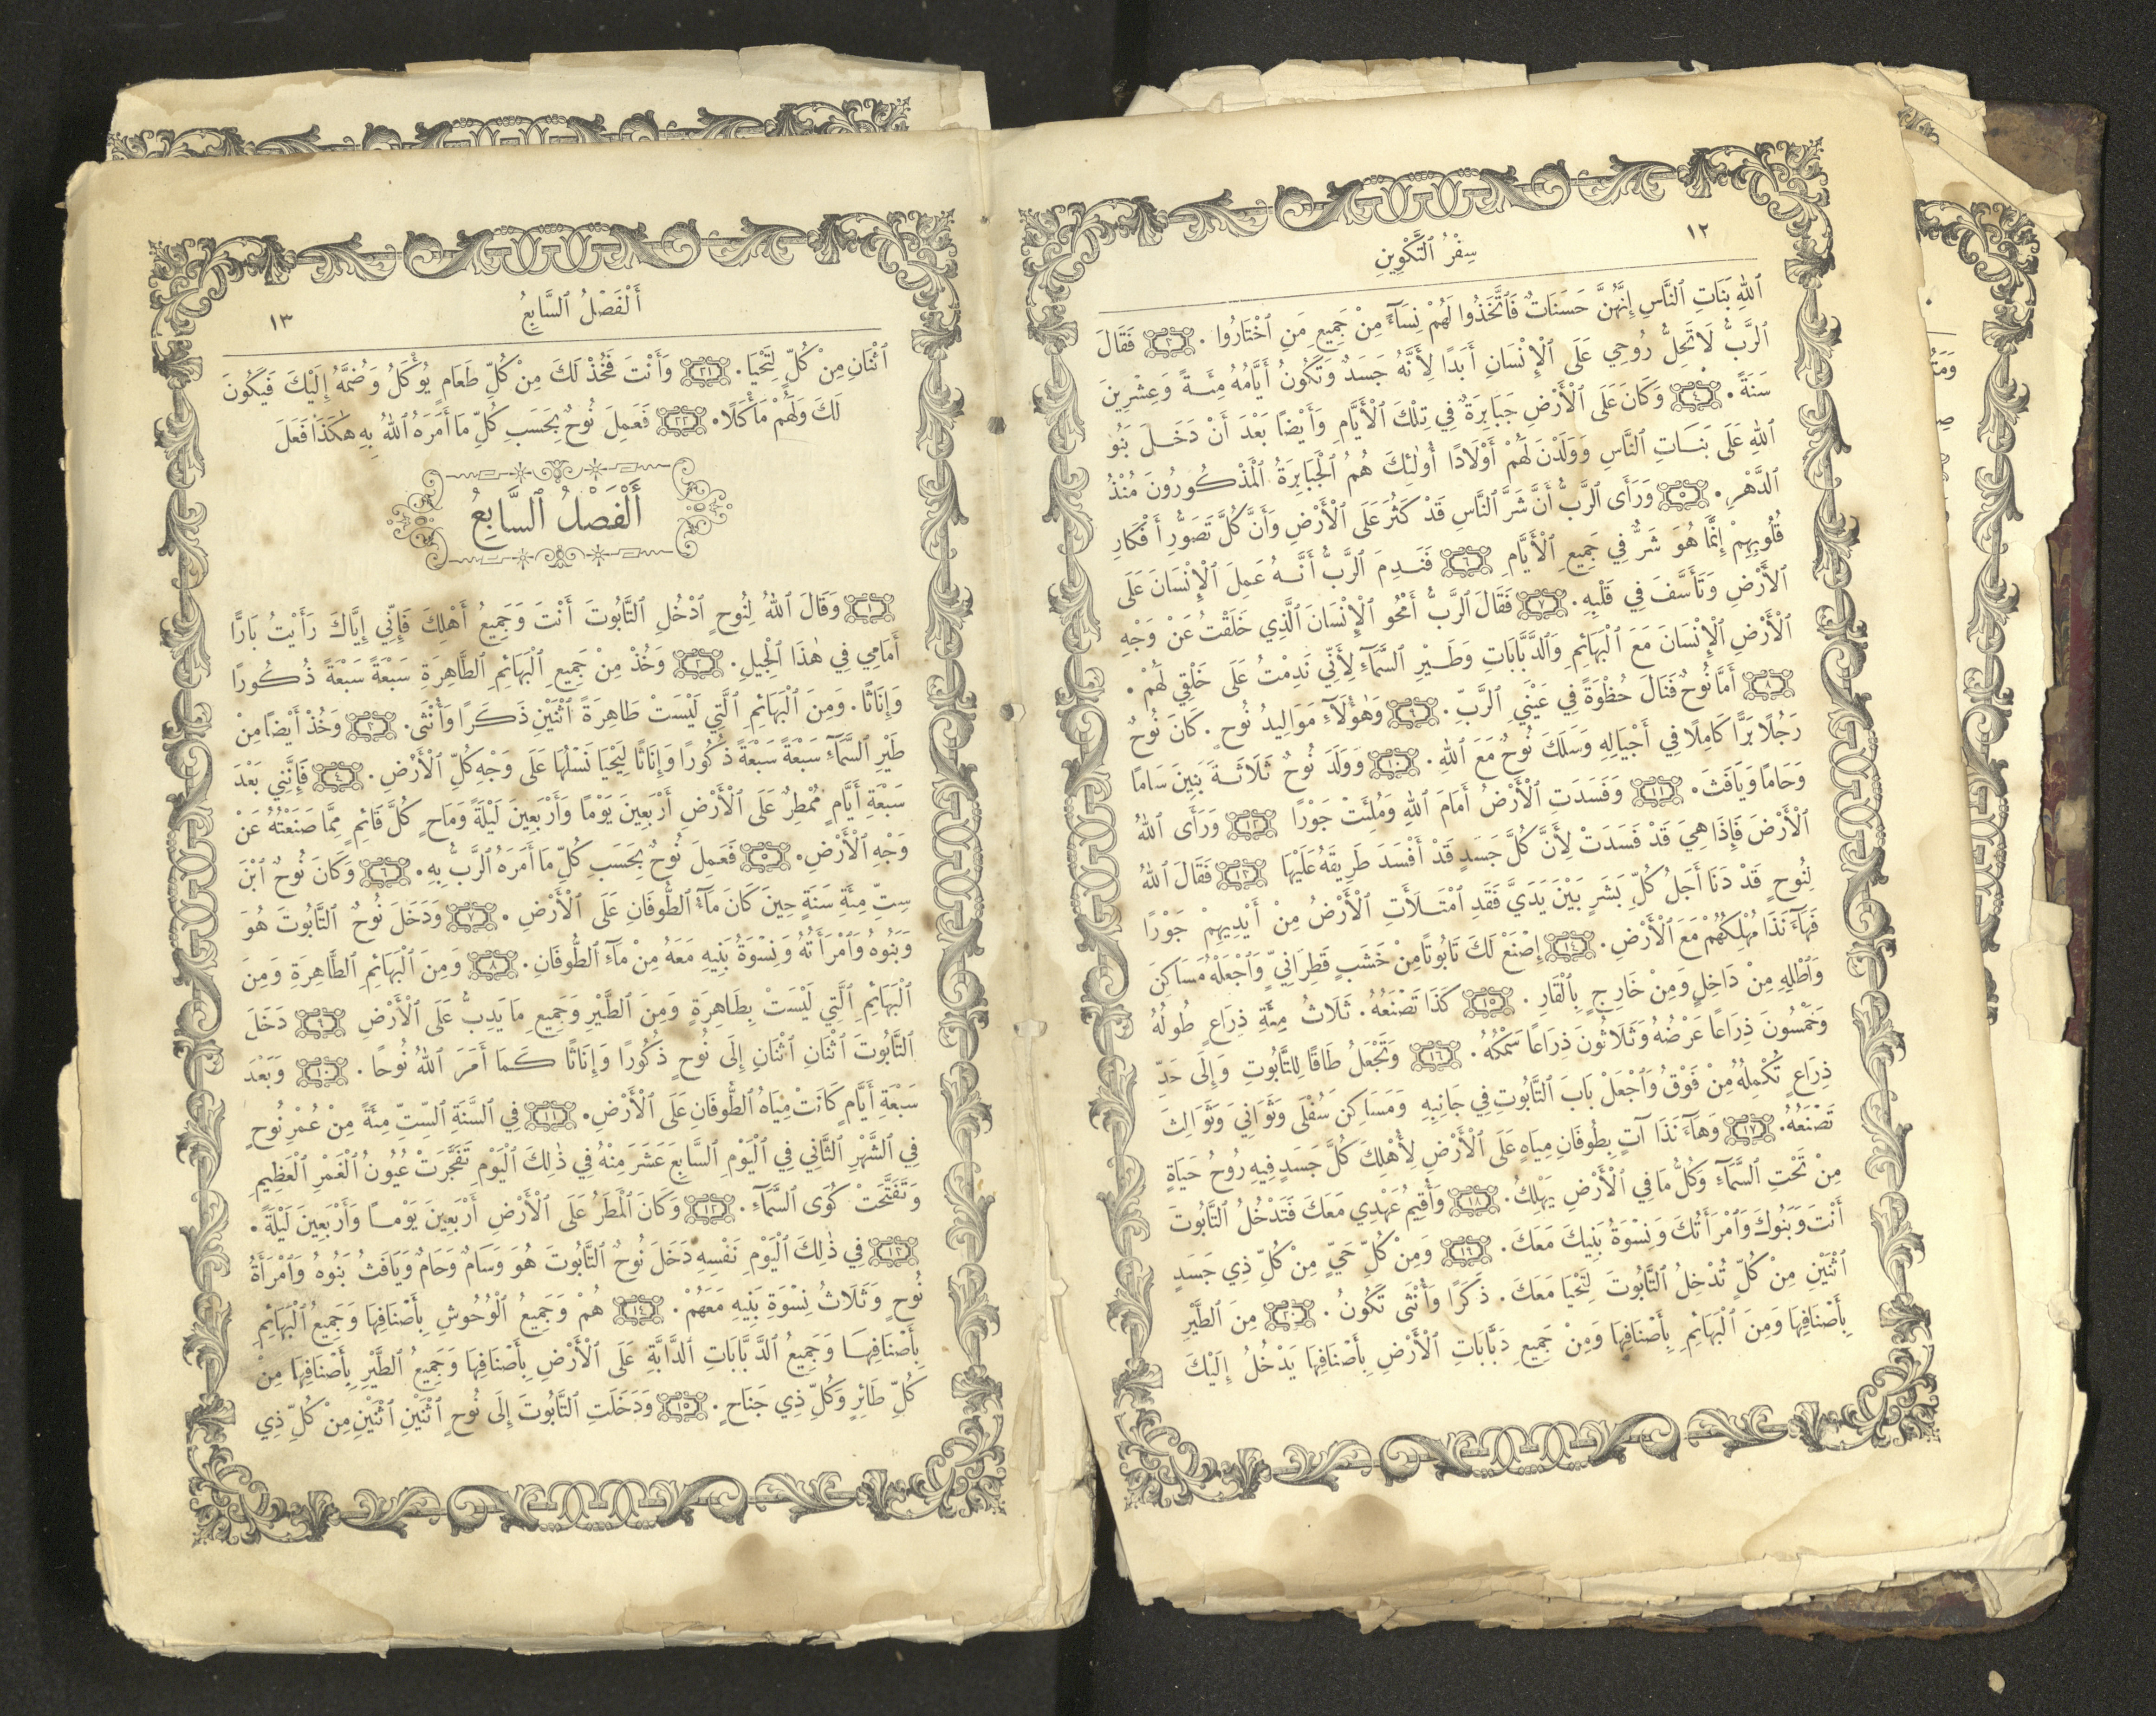 ١٢
سِفْرُ ٱلتَّكْوِينِ
ٱللهِ بَنَاتِ ٱلنَّاسِ إِنَّهُنَّ حَسَنَاتٌ فَٱتَّخَذُوا لَهُمْ نِسَآءً مِنْ جَمِيعِ مَنِ ٱخْتَارُوا . ٣ فَقَالَ
ٱلرَّبُّ لَا تَحِلُّ رُوحِي عَلَى ٱلْإِنْسَانِ أَبَدًا لِأَنَّهُ جَسَدٌ وَتَكُونُ أَيَّامُهُ مِئَةً وَعِشْرِينَ
سَنَةً . ٤ وَكَانَ عَلَى ٱلْأَرْضِ جَبَابِرَةٌ فِي تِلْكَ ٱلْأَيَّامِ وَأَيْضًا بَعْدَ أَنْ دَخَلَ بَنُو
ٱللهِ عَلَى بَنَاتِ ٱلنَّاسِ وَوَلَدْنَ لَهُمْ أَوْلَادًا أُولٰئِكَ هُمُ ٱلْجَبَابِرَةُ ٱلْمَذْكُورُونَ مُنْذُ
ٱلدَّهْرِ . ٥ وَرَأَى ٱلرَّبُّ أَنَّ شَرَّ ٱلنَّاسِ قَدْ كَثُرَ عَلَى ٱلْأَرْضِ وَأَنَّ كُلَّ تَصَوُّرِ أَفْكَارِ
قُلُوبِهِمْ إِنَّمَا هُوَ شَرٌّ فِي جَمِيعِ ٱلْأَيَّامِ ٦ فَنَدِمَ ٱلرَّبُّ أَنَّهُ عَمِلَ ٱلْإِنْسَانَ عَلَى
ٱلْأَرْضِ وَتَأَسَّفَ فِي قَلْبِهِ . ٧ فَقَالَ ٱلرَّبُّ أَمْحُو ٱلْإِنْسَانَ ٱلَّذِي خَلَقْتُ عَنْ وَجْهِ
ٱلْأَرْضِ ٱلْإِنْسَانَ مَعَ ٱلْبَهَائِمِ وَٱلدَّبَّابَاتِ وَطَيْرِ ٱلسَّمَآءِ لِأَنِّي نَدِمْتُ عَلَى خَلْقِي لَهُمْ .
٨ أَمَّا نُوحٌ فَنَالَ حُظْوَةً فِي عَيْنَيِ ٱلرَّبِّ . ٩ وَهٰؤُلَآءِ مَوَالِيدُ نُوحٍ . كَانَ نُوحٌ
رَجُلًا بَرًّا كَامِلًا فِي أَجْيَالِهِ وَسَلَكَ نُوحٌ مَعَ ٱللهِ . ١٠ وَوَلَدَ نُوحٌ ثَلَاثَةَ بَنِينَ سَامًا
وَحَامًا وَيَافَثَ . ١١ وَفَسَدَتِ ٱلْأَرْضُ أَمَامَ ٱللهِ وَمُلِئَتْ جَوْرًا ١٢ وَرَأَى ٱللهُ
ٱلْأَرْضَ فَإِذَا هِيَ قَدْ فَسَدَتْ لِأَنَّ كُلَّ جَسَدٍ قَدْ أَفْسَدَ طَرِيقَهُ عَلَيْهَا ١٣ فَقَالَ ٱللهُ
لِنُوحٍ قَدْ دَنَا أَجَلُ كُلِّ بَشَرٍ بَيْنَ يَدَيَّ فَقَدِ ٱمْتَلَأَتِ ٱلْأَرْضُ مِنْ أَيْدِيهِمْ جَوْرًا
فَهَآءَنَذَا مُهْلِكُهُمْ مَعَ ٱلْأَرْضِ . ١٤ إِصْنَعْ لَكَ تَابُوتًا مِنْ خَشَبٍ قَطِرَانِيٍّ وَٱجْعَلْهُ مَسَاكِنَ
وَٱطْلِهِ مِنْ دَاخِلٍ وَمِنْ خَارِجٍ بِٱلْقَارِ . ١٥ كَذَا تَصْنَعُهُ . ثَلَاثُ مِئَةِ ذِرَاعٍ طُولُهُ
وَخَمْسُونَ ذِرَاعًا عَرْضُهُ وَثَلَاثُونَ ذِرَاعًا سَمْكُهُ . ١٦ وَتَجْعَلُ طَاقًا لِلتَّابُوتِ وَإِلَى حَدِّ
ذِرَاعٍ تُكْمِلُهُ مِنْ فَوْقُ وَٱجْعَلْ بَابَ ٱلتَّابُوتِ فِي جَانِبِهِ وَمَسَاكِنَ سُفْلَى وَثَوَانِيَ وَثَوَالِثَ
تَصْنَعُهُ . ١٧ وَهَآءَنَذَا آتٍ بِطُوفَانِ مِيَاهٍ عَلَى ٱلْأَرْضِ لِأُهْلِكَ كُلَّ جَسَدٍ فِيهِ رُوحُ حَيَاةٍ
مِنْ تَحْتِ ٱلسَّمَآءِ وَكُلُّ مَا فِي ٱلْأَرْضِ يَهْلِكُ . ١٨ وَأُقِيمُ عَهْدِي مَعَكَ فَتَدْخُلُ ٱلتَّابُوتَ
أَنْتَ وَبَنُوكَ وَٱمْرَأَتُكَ وَنِسْوَةُ بَنِيكَ مَعَكَ . ١٩ وَمِنْ كُلِّ حَيٍّ مِنْ كُلِّ ذِي جَسَدٍ
ٱثْنَيْنِ مِنْ كُلٍّ تُدْخِلُ ٱلتَّابُوتَ لِتَحْيَا مَعَكَ . ذَكَرًا وَأُنْثَى تَكُونُ . ٢٠ مِنَ ٱلطَّيْرِ
بِأَصْنَافِهَا وَمِنَ ٱلْبَهَائِمِ بِأَصْنَافِهَا وَمِنْ جَمِيعِ دَبَّابَاتِ ٱلْأَرْضِ بِأَصْنَافِهَا يَدْخُلُ إِلَيْكَ
أَلْفَصْلُ ٱلسَّابِعُ
١٣
ٱثْنَانِ مِنْ كُلٍّ لِتَحْيَا . ٢١ وَأَنْتَ فَخُذْ لَكَ مِنْ كُلِّ طَعَامٍ يُؤْكَلُ وَضُمَّهُ إِلَيْكَ فَيَكُونَ
لَكَ وَلَهُمْ مَأْكَلًا . ٢٢ فَعَمِلَ نُوحٌ بِحَسَبِ كُلِّ مَا أَمَرَهُ ٱللهُ بِهِ هٰكَذَا فَعَلَ
أَلْفَصْلُ ٱلسَّابِعُ
١ وَقَالَ ٱللهُ لِنُوحٍ ٱدْخُلِ ٱلتَّابُوتَ أَنْتَ وَجَمِيعُ أَهْلِكَ فَإِنِّي إِيَّاكَ رَأَيْتُ بَارًّا
أَمَامِي فِي هٰذَا ٱلْجِيلِ . ٢ وَخُذْ مِنْ جَمِيعِ ٱلْبَهَائِمِ ٱلطَّاهِرَةِ سَبْعَةً سَبْعَةً ذُكُورًا
وَإِنَاثًا . وَمِنَ ٱلْبَهَائِمِ ٱلَّتِي لَيْسَتْ طَاهِرَةً ٱثْنَيْنِ ذَكَرًا وَأُنْثَى . ٣ وَخُذْ أَيْضًا مِنْ
طَيْرِ ٱلسَّمَآءِ سَبْعَةً سَبْعَةً ذُكُورًا وَإِنَاثًا لِيَحْيَا نَسْلُهَا عَلَى وَجْهِ كُلِّ ٱلْأَرْضِ . ٤ فَإِنَّنِي بَعْدَ
سَبْعَةِ أَيَّامٍ مُمْطِرٌ عَلَى ٱلْأَرْضِ أَرْبَعِينَ يَوْمًا وَأَرْبَعِينَ لَيْلَةً وَمَاحٍ كُلَّ قَائِمٍ مِمَّا صَنَعْتُهُ عَنْ
وَجْهِ ٱلْأَرْضِ . ٥ فَعَمِلَ نُوحٌ بِحَسَبِ كُلِّ مَا أَمَرَهُ ٱلرَّبُّ بِهِ . ٦ وَكَانَ نُوحٌ ٱبْنَ
سِتِّ مِئَةِ سَنَةٍ حِينَ كَانَ مَآءُ ٱلطُّوفَانِ عَلَى ٱلْأَرْضِ . ٧ وَدَخَلَ نُوحٌ ٱلتَّابُوتَ هُوَ
وَبَنُوهُ وَٱمْرَأَتُهُ وَنِسْوَةُ بَنِيهِ مَعَهُ مِنْ مَآءِ ٱلطُّوفَانِ . ٨ وَمِنَ ٱلْبَهَائِمِ ٱلطَّاهِرَةِ وَمِنَ
ٱلْبَهَائِمِ ٱلَّتِي لَيْسَتْ بِطَاهِرَةٍ وَمِنَ ٱلطَّيْرِ وَجَمِيعِ مَا يَدِبُّ عَلَى ٱلْأَرْضِ ٩ دَخَلَ
ٱلتَّابُوتَ ٱثْنَانِ ٱثْنَانِ إِلَى نُوحٍ ذُكُورًا وَإِنَاثًا كَمَا أَمَرَ ٱللهُ نُوحًا . ١٠ وَبَعْدَ
سَبْعَةِ أَيَّامٍ كَانَتْ مِيَاهُ ٱلطُّوفَانِ عَلَى ٱلْأَرْضِ . ١١ فِي ٱلسَّنَةِ ٱلسِّتِّ مِئَةٍ مِنْ عُمْرِ نُوحٍ
فِي ٱلشَّهْرِ ٱلثَّانِي فِي ٱلْيَوْمِ ٱلسَّابِعَ عَشَرَ مِنْهُ فِي ذٰلِكَ ٱلْيَوْمِ تَفَجَّرَتْ عُيُونُ ٱلْغَمْرِ ٱلْعَظِيمِ
وَتَفَتَّحَتْ كُوَى ٱلسَّمَآءِ . ١٢ وَكَانَ ٱلْمَطَرُ عَلَى ٱلْأَرْضِ أَرْبَعِينَ يَوْمًا وَأَرْبَعِينَ لَيْلَةً .
١٣ فِي ذٰلِكَ ٱلْيَوْمِ نَفْسِهِ دَخَلَ نُوحٌ ٱلتَّابُوتَ هُوَ وَسَامٌ وَحَامٌ وَيَافَثُ بَنُوهُ وَٱمْرَأَةُ
نُوحٍ وَثَلَاثُ نِسْوَةِ بَنِيهِ مَعَهُمْ . ١٤ هُمْ وَجَمِيعُ ٱلْوُحُوشِ بِأَصْنَافِهَا وَجَمِيعُ ٱلْبَهَائِمِ
بِأَصْنَافِهَا وَجَمِيعُ ٱلدَّبَّابَاتِ ٱلدَّابَّةِ عَلَى ٱلْأَرْضِ بِأَصْنَافِهَا وَجَمِيعُ ٱلطَّيْرِ بِأَصْنَافِهَا مِنْ
كُلِّ طَائِرٍ وَكُلِّ ذِي جَنَاحٍ . ١٥ وَدَخَلَتِ ٱلتَّابُوتَ إِلَى نُوحٍ ٱثْنَيْنِ ٱثْنَيْنِ مِنْ كُلِّ ذِي